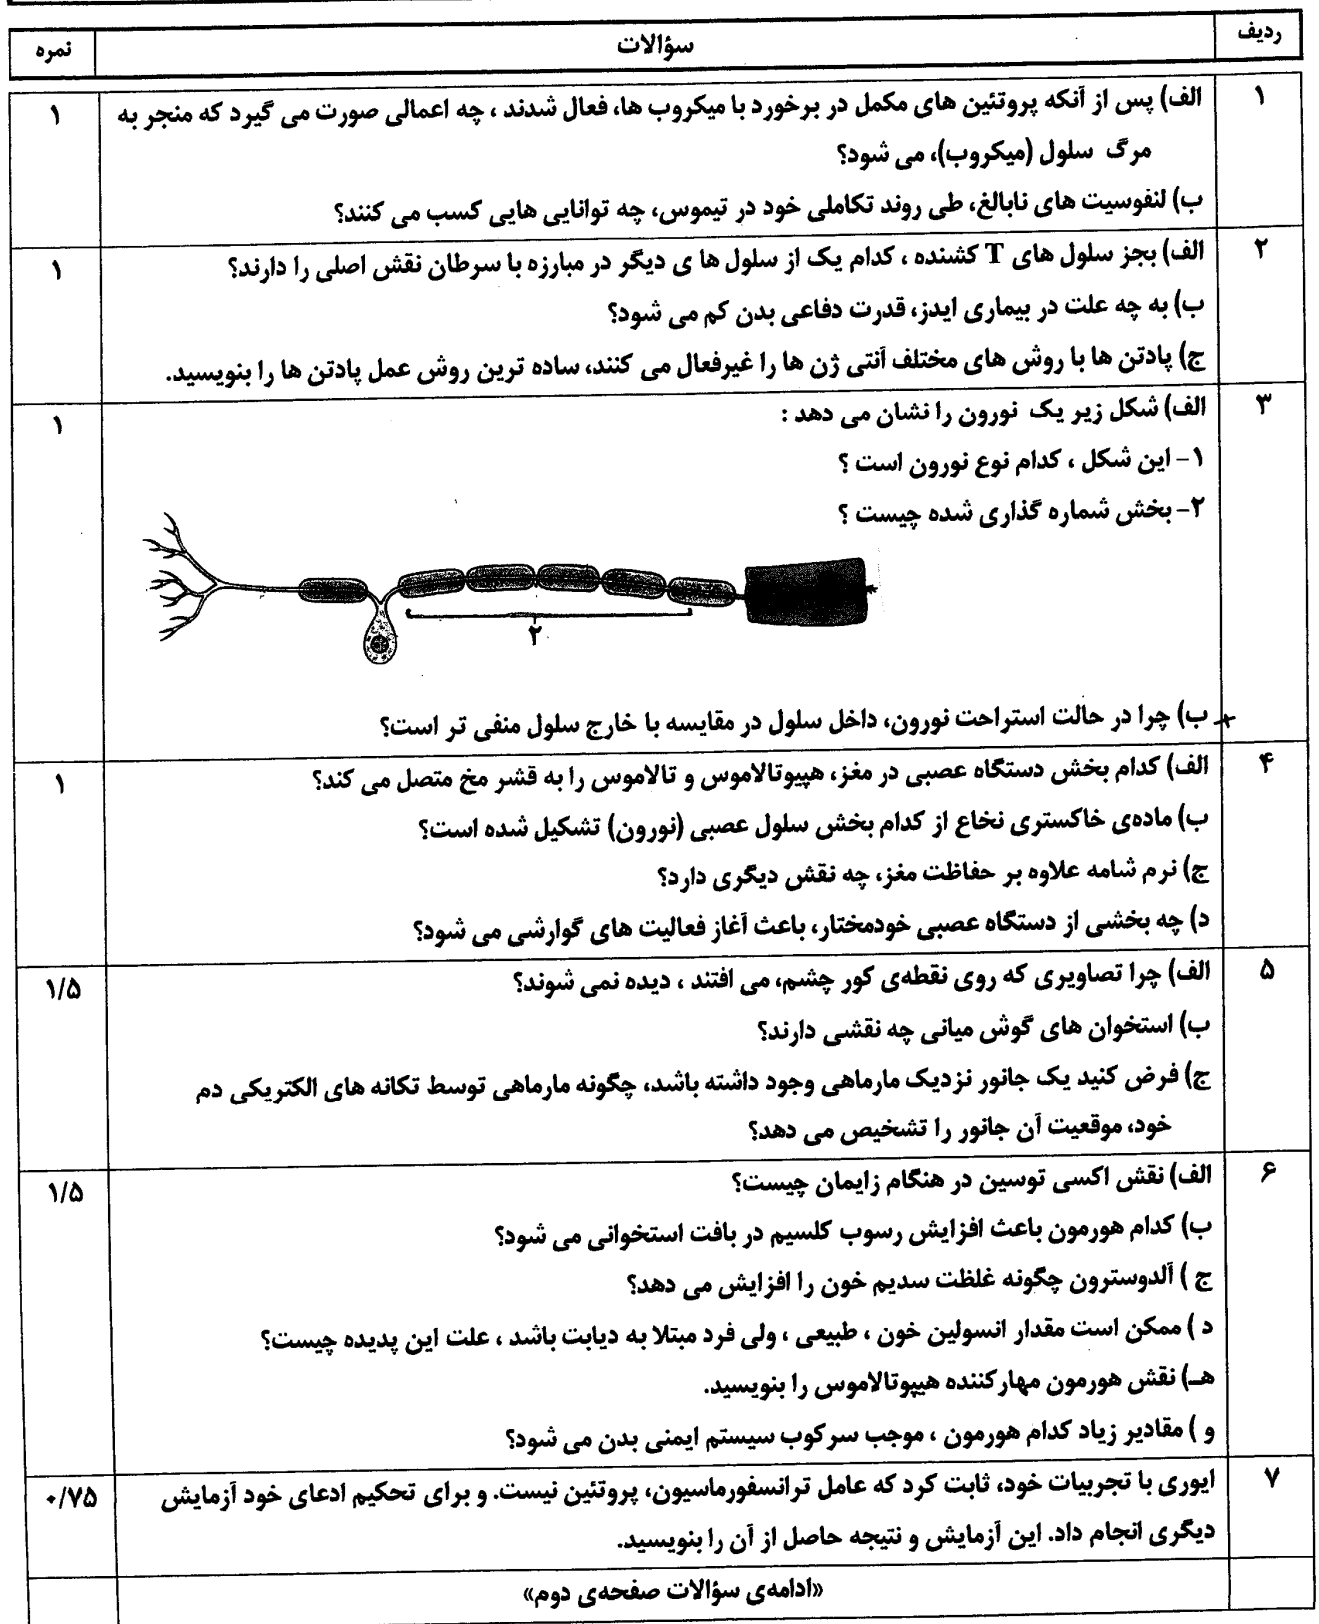 ردیف سؤالات نمره
۱ الف) پس از آنکه پروتئین های مکمل در برخورد با میکروب ها، فعال شدند ، چه اعمالی صورت می گیرد که منجر به ۱
مرگ سلول (میکروب)، می شود؟
ب) لنفوسیت های نابالغ، طی روند تکاملی خود در تیموس، چه توانایی هایی کسب می کنند؟
۲ الف) بجز سلول های T کشنده ، کدام یک از سلول ها ی دیگر در مبارزه با سرطان نقش اصلی را دارند؟ ۱
ب) به چه علت در بیماری ایدز، قدرت دفاعی بدن کم می شود؟
ج) پادتن ها با روش های مختلف آنتی ژن ها را غیرفعال می کنند، ساده ترین روش عمل پادتن ها را بنویسید.
۳ الف) شکل زیر یک نورون را نشان می دهد : ۱
۱- این شکل ، کدام نوع نورون است ؟
۲- بخش شماره گذاری شده چیست ؟
۲
ب) چرا در حالت استراحت نورون، داخل سلول در مقایسه با خارج سلول منفی تر است؟
۴ الف) کدام بخش دستگاه عصبی در مغز، هیپوتالاموس و تالاموس را به قشر مخ متصل می کند؟ ۱
ب) ماده‌ی خاکستری نخاع از کدام بخش سلول عصبی (نورون) تشکیل شده است؟
ج) نرم شامه علاوه بر حفاظت مغز، چه نقش دیگری دارد؟
د) چه بخشی از دستگاه عصبی خودمختار، باعث آغاز فعالیت های گوارشی می شود؟
۵ الف) چرا تصاویری که روی نقطه‌ی کور چشم، می افتند ، دیده نمی شوند؟ ۱/۵
ب) استخوان های گوش میانی چه نقشی دارند؟
ج) فرض کنید یک جانور نزدیک مارماهی وجود داشته باشد، چگونه مارماهی توسط تکانه های الکتریکی دم
خود، موقعیت آن جانور را تشخیص می دهد؟
۶ الف) نقش اکسی توسین در هنگام زایمان چیست؟ ۱/۵
ب) کدام هورمون باعث افزایش رسوب کلسیم در بافت استخوانی می شود؟
ج ) آلدوسترون چگونه غلظت سدیم خون را افزایش می دهد؟
د ) ممکن است مقدار انسولین خون ، طبیعی ، ولی فرد مبتلا به دیابت باشد ، علت این پدیده چیست؟
هـ) نقش هورمون مهارکننده هیپوتالاموس را بنویسید.
و ) مقادیر زیاد کدام هورمون ، موجب سرکوب سیستم ایمنی بدن می شود؟
۷ ایوری با تجربیات خود، ثابت کرد که عامل ترانسفورماسیون، پروتئین نیست. و برای تحکیم ادعای خود آزمایش ۰/۷۵
دیگری انجام داد. این آزمایش و نتیجه حاصل از آن را بنویسید.
«ادامه‌ی سؤالات صفحه‌ی دوم»